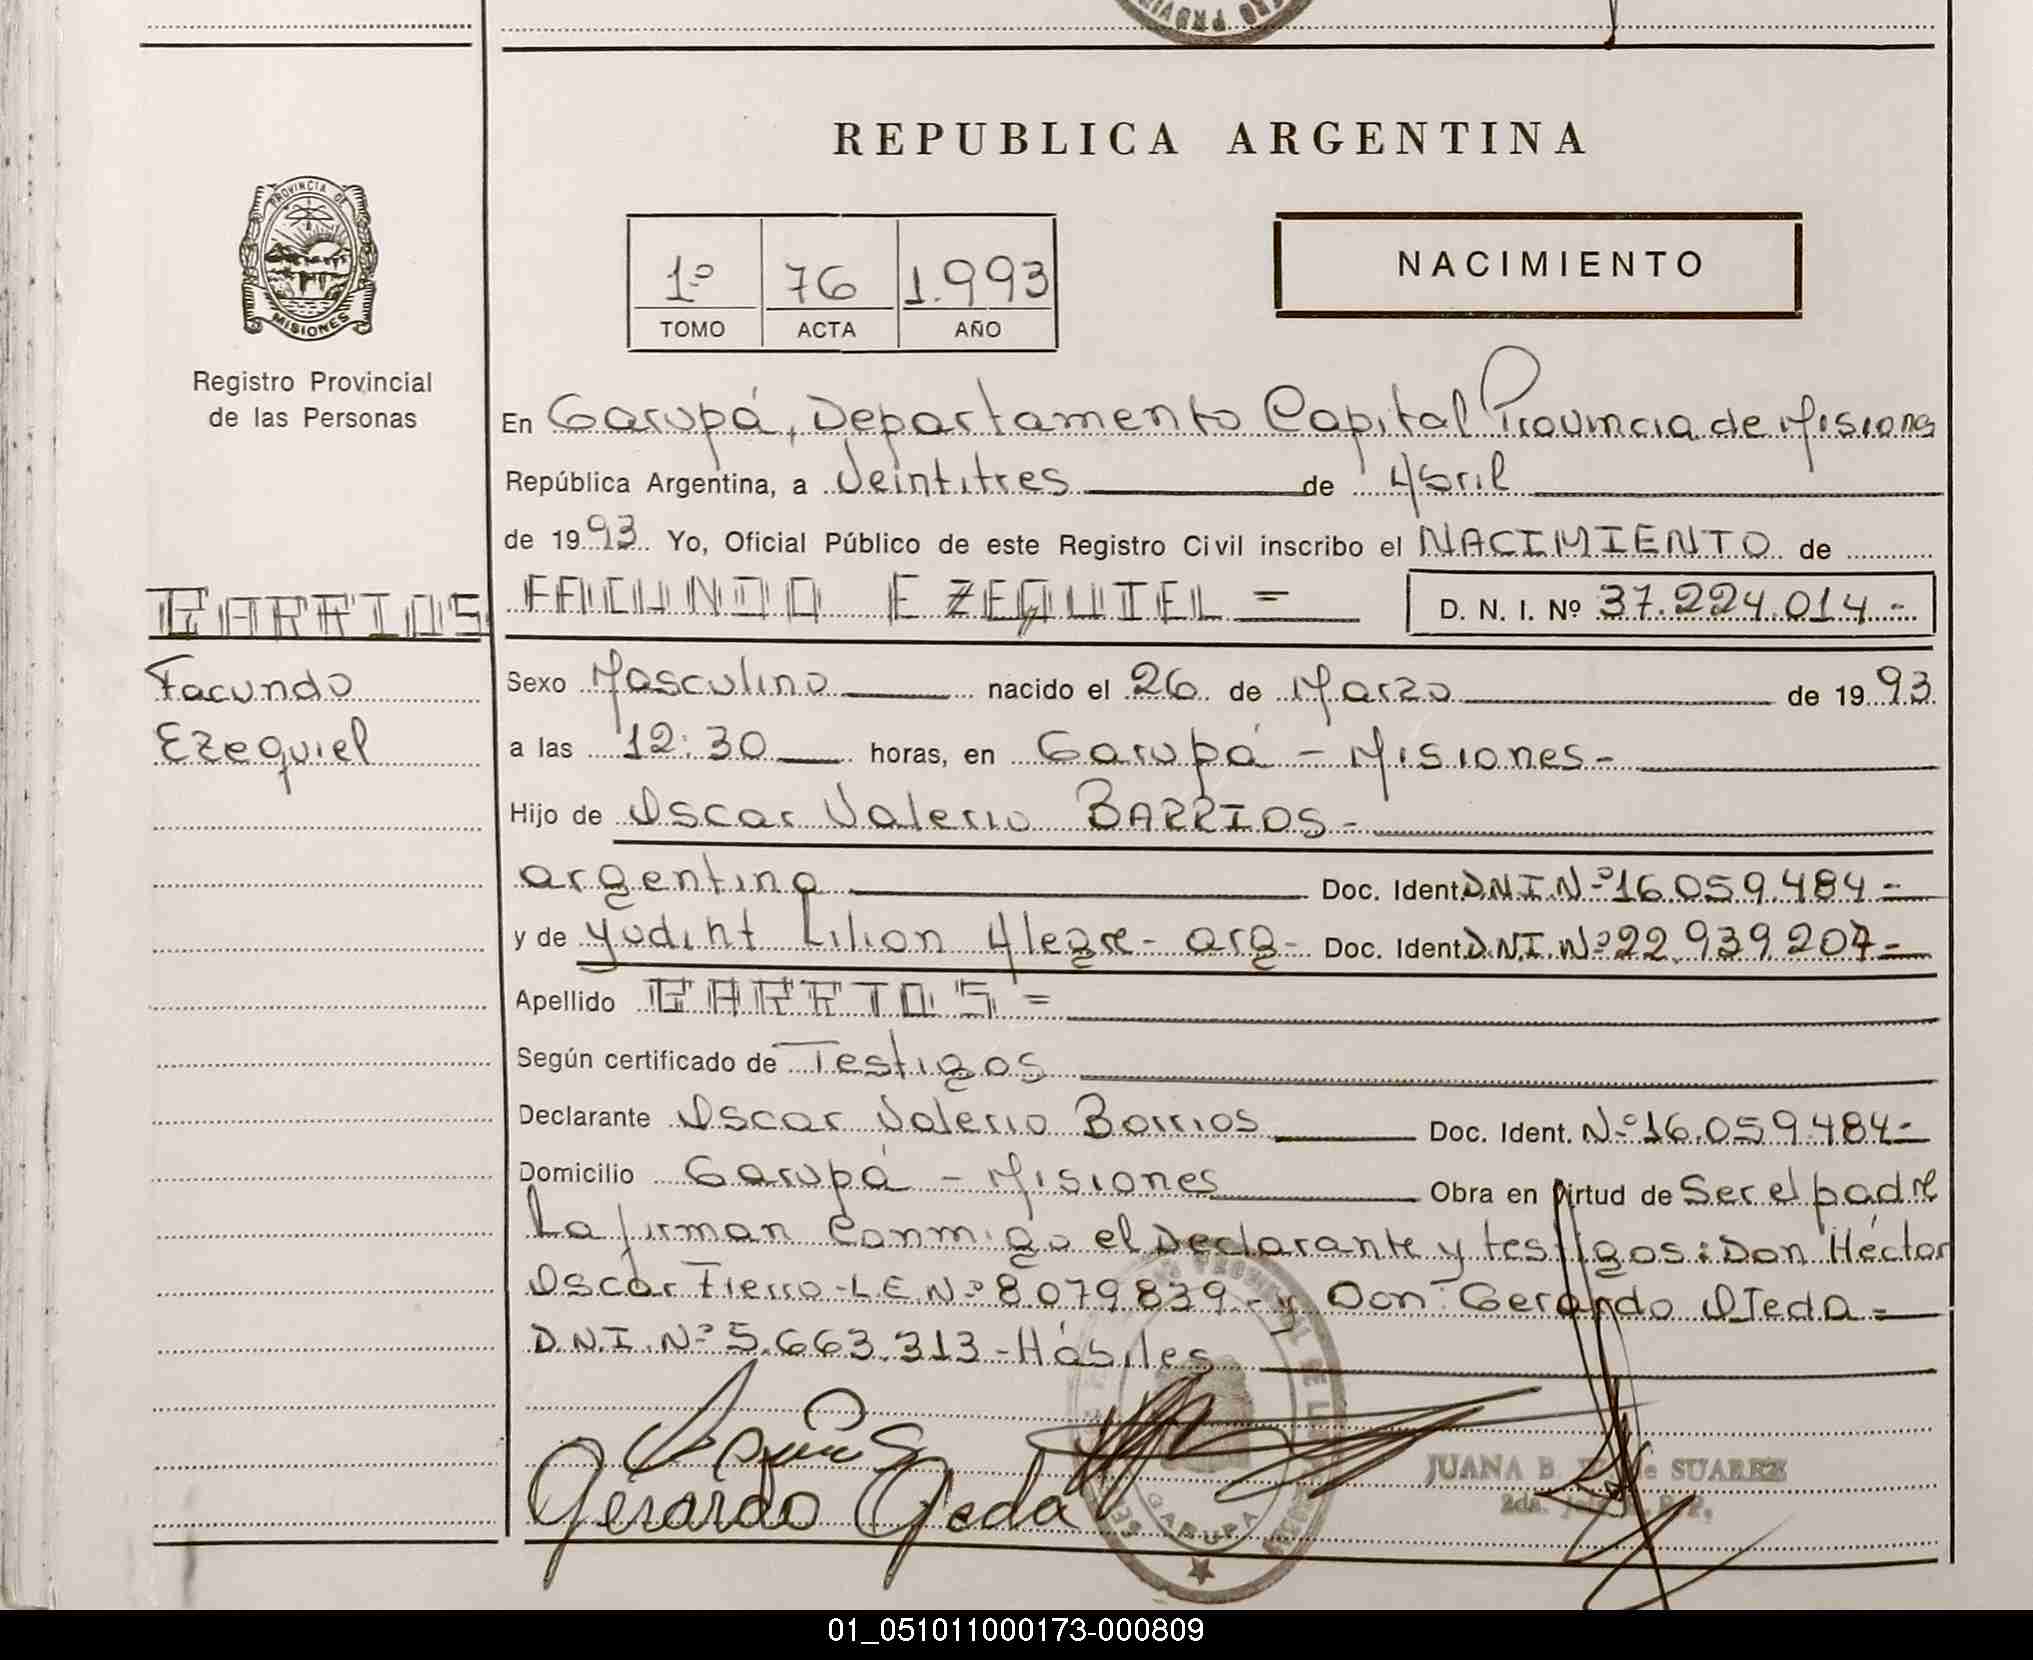 REPUBLICA ARGENTINA
PROVINCIA DE
MISIONES
Registro Provincial
de las Personas
1º 76 1.993
TOMO ACTA AÑO
NACIMIENTO
En Garupá, Departamento Capital Provincia de Misiones
República Argentina, a Veintitres de Abril
de 1993. Yo, Oficial Público de este Registro Civil inscribo el NACIMIENTO de
BARRIOS
FACUNDO EZEQUIEL =
D. N. I. Nº 37.224.014.-
Facundo
Ezequiel
Sexo Masculino nacido el 26 de Marzo de 1993.
a las 12:30 horas, en Garupá - Misiones-
Hijo de Oscar Valerio BARRIOS-
argentino Doc. Ident. D.N.I.Nº16.059.484-
y de Yudiht Lilian Alegre- arg- Doc. Ident. D.N.I.Nº22.939.207-
Apellido BARRIOS =
Según certificado de Testigos
Declarante Oscar Valerio Barrios Doc. Ident. Nº16.059.484-
Domicilio Garupá - Misiones Obra en virtud de Ser el padre
La firman conmigo el Declarante y testigos: Don Héctor
Oscar Fierro-L.E.Nº8.079.839-y Don Gerardo Ojeda-
D.N.I.Nº5.663.313-Hábiles
Gerardo Ojeda
GARUPA
JUANA B. de SUAREZ
01_051011000173-000809